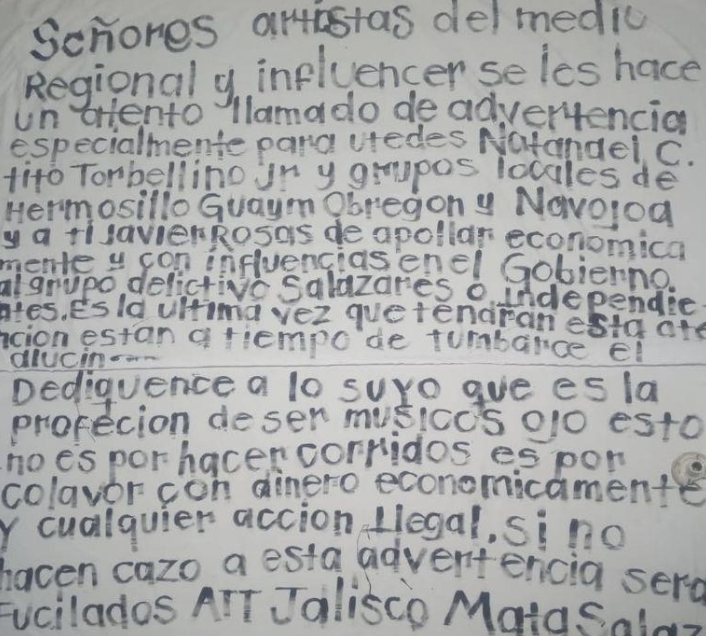 Señores artistas del medio
Regional y influencer se les hace
un atento llamado de advertencia
especialmente para utedes Natanael C.
tito Torbellino Jr y grupos locales de
Hermosillo Guaym Obregon y Navojoa
y a ti Javier Rosas de apollar economica
mente y con influencias en el Gobierno.
al grupo delictivo Salazares o independie
ntes. Es la ultima vez que tendran esta ate
ncion estan a tiempo de tumbarce el
alucin----
Dediquence a lo suyo que es la
profecion de ser musicos ojo esto
no es por hacer corridos es por
colavor con dinero economicamente
Y cualquier accion ilegal. si no
hacen cazo a esta advertencia sera
Fucilados ATT Jalisco Mata Salaz